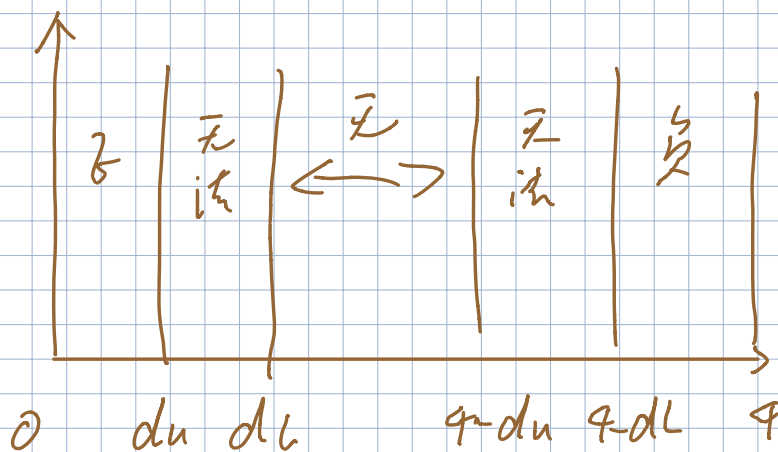 正 无法 无 无法 负
0 du dL 4-du 4-dL 4